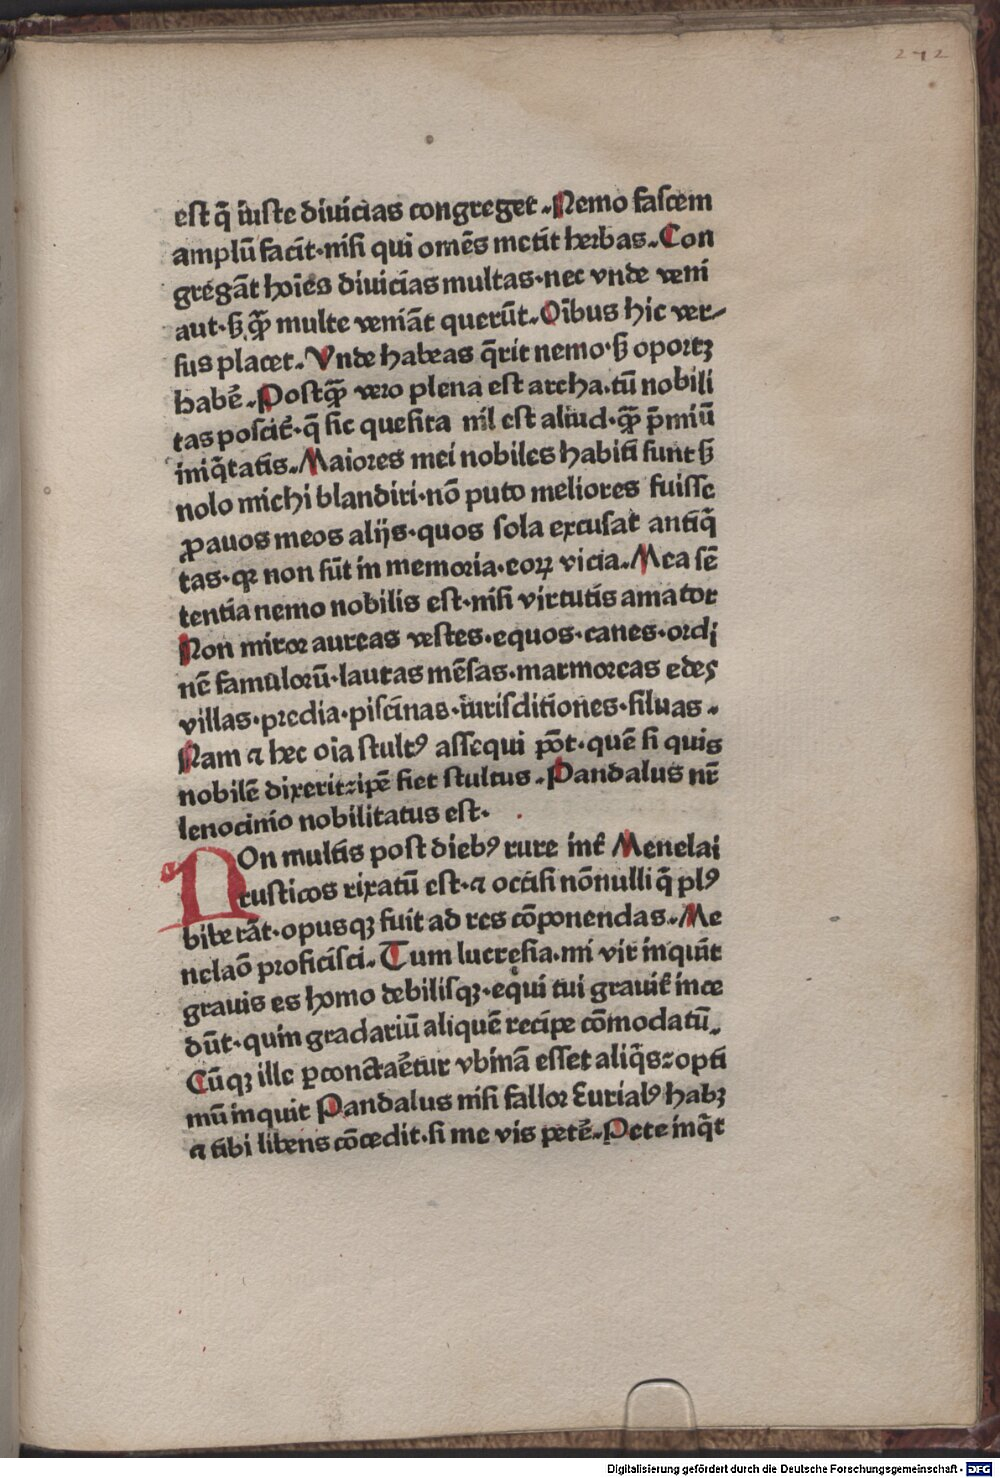 272
est q̄ iuste diuicias congreget. Nemo fascem
amplū facit. nisi qui omēs metit herbas. Con
gregāt hoīes diuicias multas. nec vnde veni
aut. ß ꝙ̄ multe veniāt querūt. Oībus hic ver⸗
sus placet. Vnde habeas q̄rit nemo. ß oportꝫ
habē. Postꝙ̄ vero plena est archa. tū nobili
tas poscit᷑. q̄ sic quesita nil est aliud. ꝙ̄ p̄miū
iniq̄tatis. Maiores mei nobiles habiti sunt ß
nolo michi blandiri. nō puto meliores fuisse
ꝓauos meos alijs. quos sola excusat antiq̄
tas. qꝛ non sūt in memoria. eoꝝ vicia. Mea sē
tentia nemo nobilis est. nisi virtutis amator
Non miror aureas vestes. equos. canes. ordi
nē famulorū. lautas mēsas. marmoreas edes
villas. predia. piscinas. iurisditiones. siluas.
Nam ⁊ hec oīa stultꝰ assequi pōt. quē si quis
nobilē dixerit: ip̄e fiet stultus. Pandalus nr̄
lenocinio nobilitatus est.
NOn multis post diebꝰ rure int᷑ Menelai
rusticos rixatū est. ⁊ occisi nōnulli q̄ plꝰ
biberāt. opusqꝫ fuit ad res cōponendas. Me
nelaō proficisci. Tum lucresia. mi vir inquit
grauis es homo debilisqꝫ. equi tui grauit᷑ ince
dūt. quin gradariū aliquē recipe cōmodatū.
Cūqꝫ ille ꝑconctaēt᷑ur vbinā esset aliq̄s: opti
mū inquit Pandalus nisi fallor Eurialꝰ habꝫ
⁊ tibi libens cōcedit. si me vis petē. Pete inq̄t
Digitalisierung gefördert durch die Deutsche Forschungsgemeinschaft - DFG